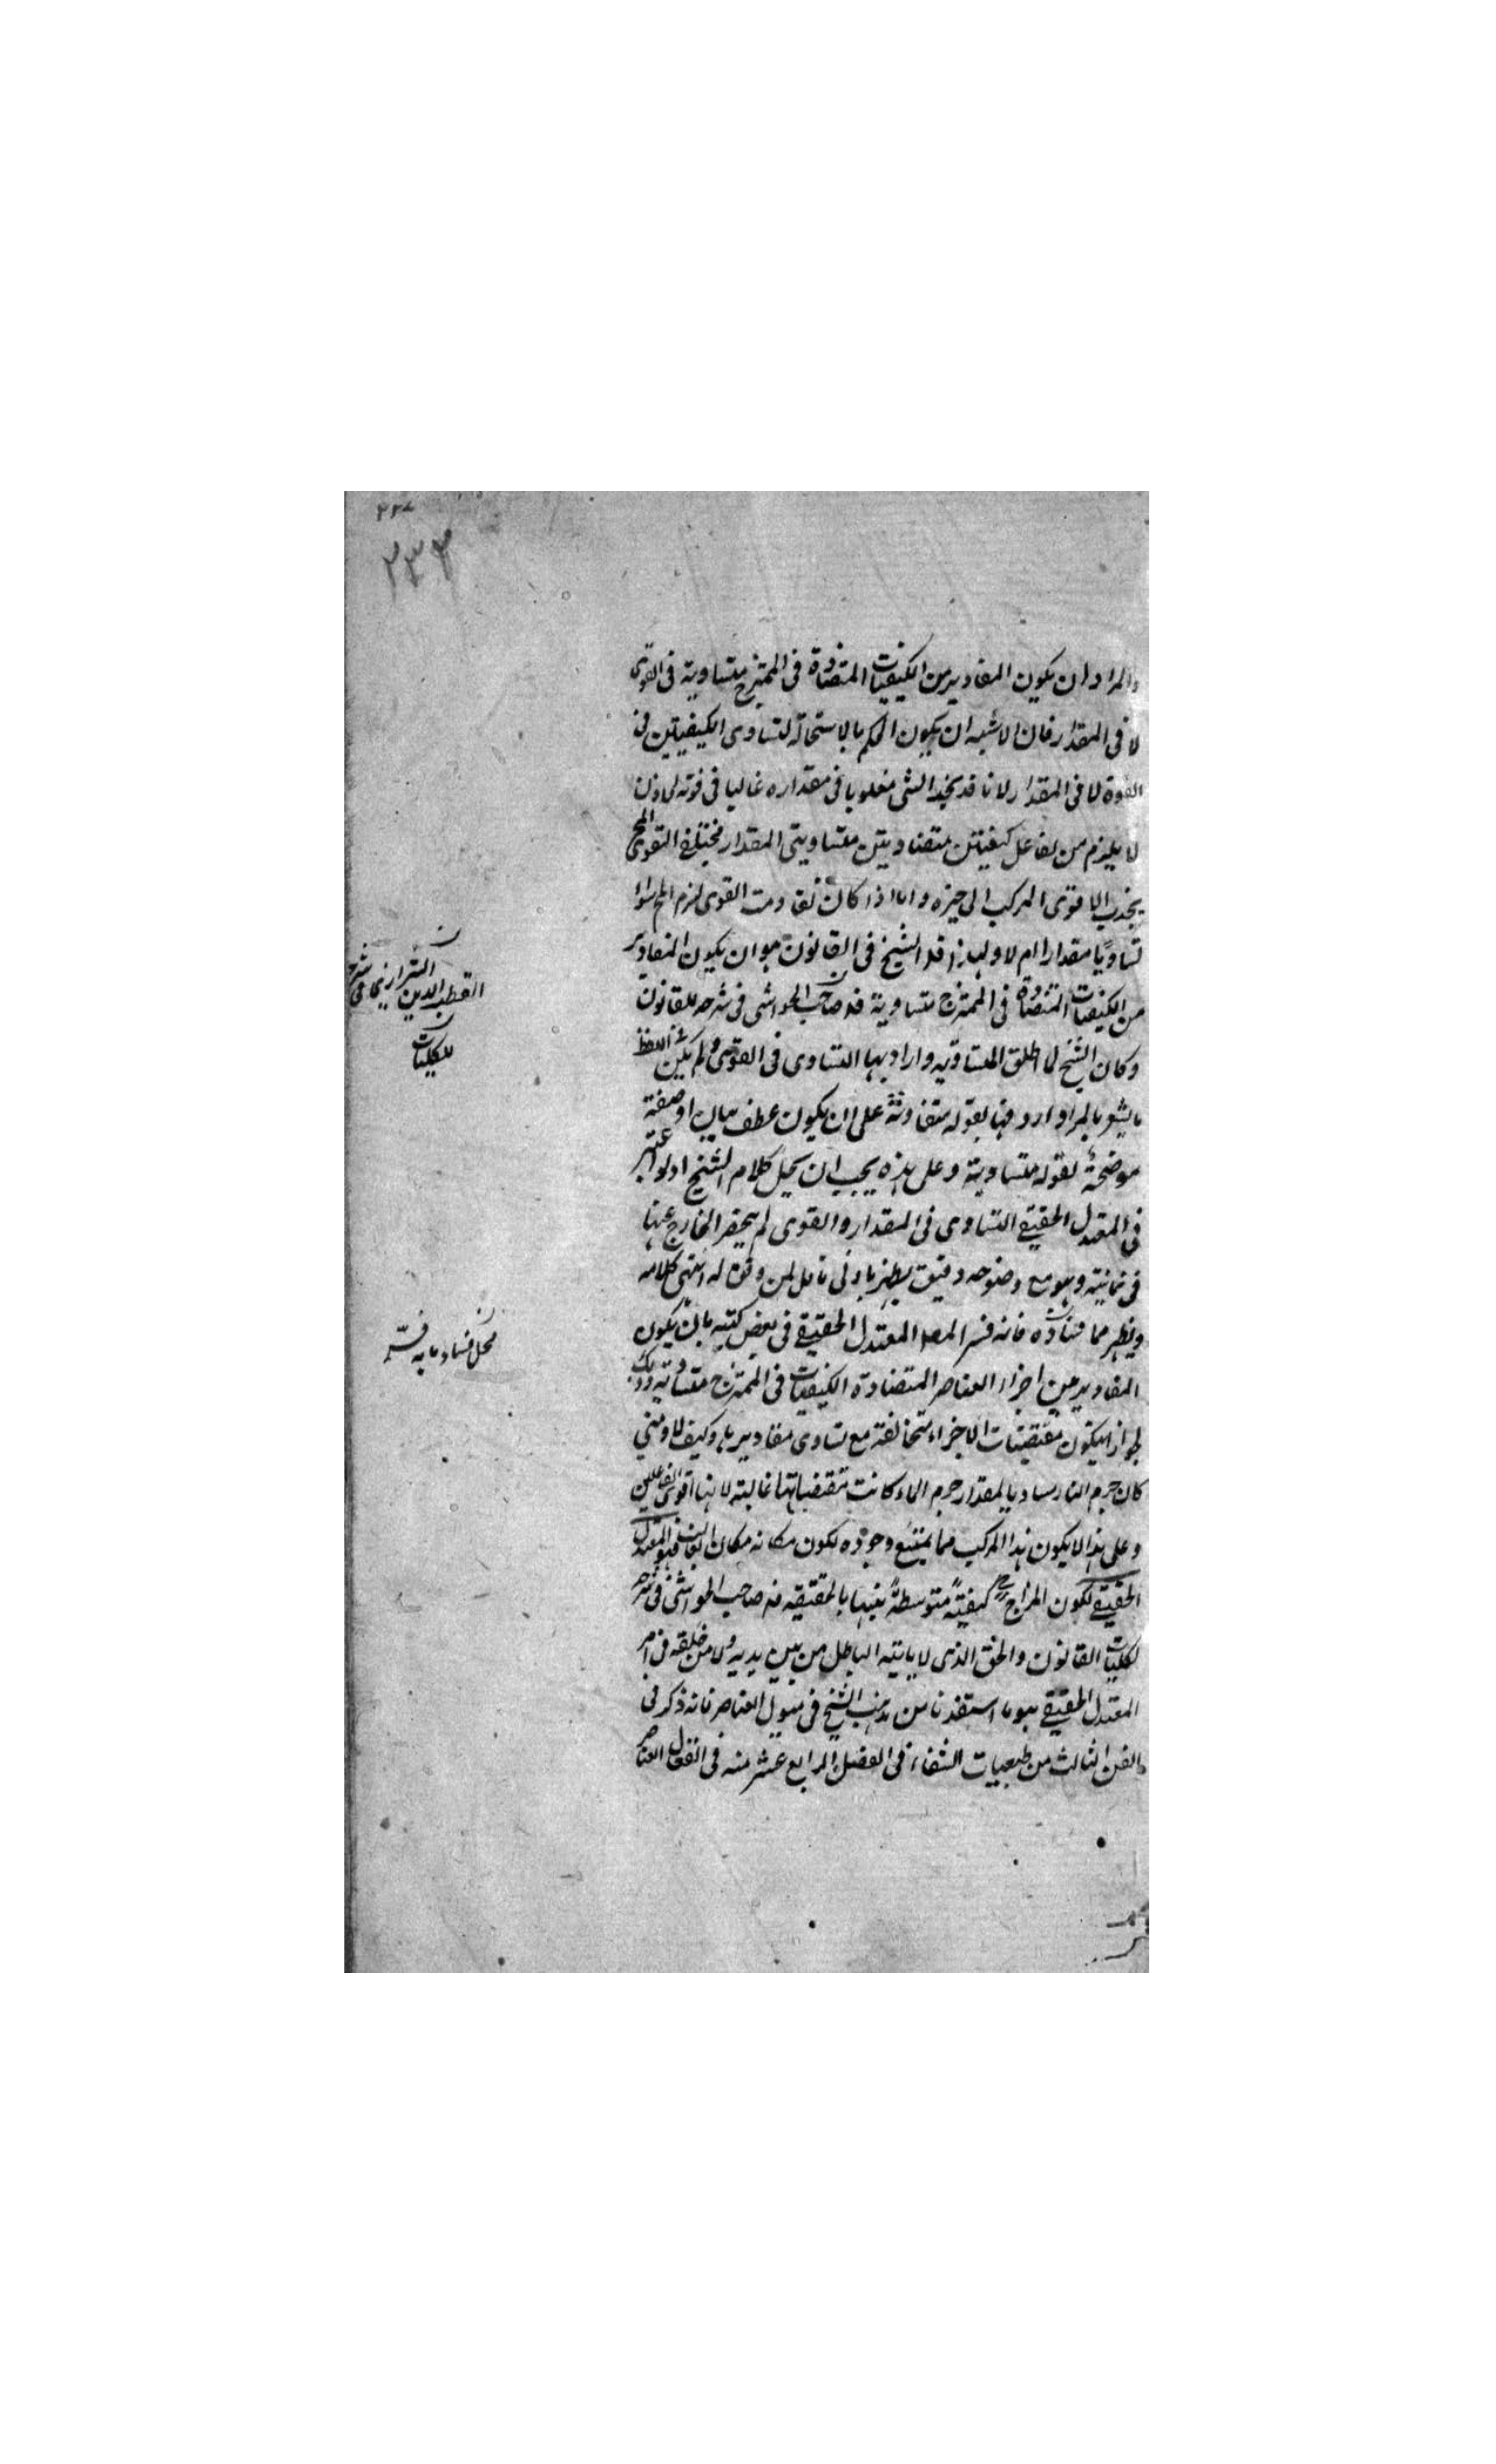 ٢٣٣
والمراد ان يكون المقادير من الكيفيات المتضادة فى الممتزج متساوية فى القوى
لا فى المقدار فان الاشبه ان يكون الحكم بالاستحالة لتساوى الكيفيتين فى
القوة لا فى المقدار لانا قد نجد الشى مغلوبا فى مقداره غالبا فى قوته لماذن
لا يلزم من تفاعل كيفيتين متضادتين متساويتى المقدار مختلفى القوى
يجذب الاقوى المركب الى حيزه واما اذا كان تقاومت القوى لزم سواء
تساويا مقدارا ام لا ولهذا قال الشيخ فى القانون هو ان يكون المقادير
من الكيفيات المتضادة فى الممتزج متساوية قال صاحب الحواشى فى شرحه للقانون
وكان الشيخ لما اطلق المتساوية واراد بها التساوى فى القوى ولم يكن فى اللفظ
ما يشعر بالمراد اردفها بقوله متقاومة على ان يكون عطف بيان او صفة
موضحة لقوله متساوية وعلى هذه يجب ان يحمل كلام الشيخ اذ لو اعتبر
فى المعتدل الحقيقى التساوى فى المقدار والقوى لم ينحصر الخارج عنها
فى ثمانية وهو مع وضوحه دقيق يظهر بادنى تامل لمن وفق له انتهى كلامه
ويظهر مما فساده فانه فسر المعتدل الحقيقى فى بعض كتبه بان يكون
المقادير من اجزاء العناصر المتضادة الكيفيات فى الممتزج متساوية وذلك
لجواز ان يكون مقتضيات الاجزاء متخالفة مع تساوى مقاديرها وكيف لا ومتى
كان جرم النار مساويا لمقدار جرم الماء كانت مقتضياتها غالبة لانها اقوى الفاعلين
وعلى هذا لا يكون هذا المركب مما يمتنع وجوده لكون مكانه مكان الغالب فهو المعتدل
الحقيقى لكون المزاج كيفية متوسطة بينها بالحقيقة قال صاحب الحواشى فى شرحه
لكليات القانون والحق الذى لا ياتيه الباطل من بين يديه ولا من خلفه فى امر
المعتدل الحقيقى هو ما استفدنا من مذهب الشيخ فى ميول العناصر فانه ذكر فى
الفن الثالث من طبيعيات الشفاء فى الفصل الرابع عشر منه فى انفعال العناصر
القطب الدين الشيرازى فى شرح
للكليات
محل فساد ما به فسر